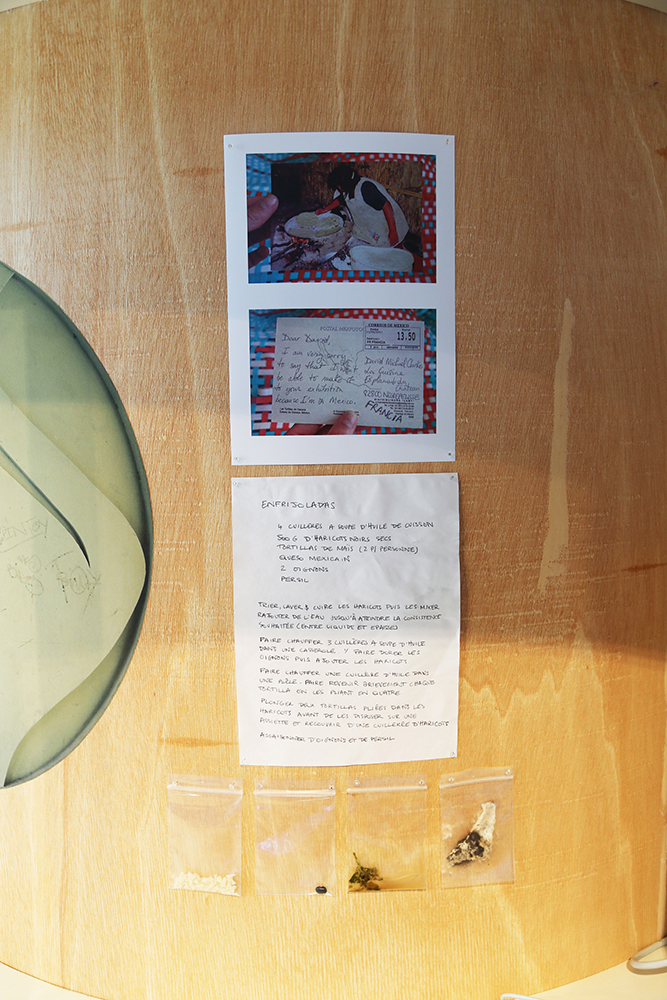 POSTAL
CORREOS DE MEXICO
13.50
Dear David,
I am very sorry
to say that I won't
be able to make it
to your exhibition
because I'm in Mexico.
David Michael Clarke
La Cuisine
Esplanade du
Château
82800
FRANCIA
ENFRIJOLADAS
4 CUILLÈRES A SOUPE D'HUILE DE CUISSON
500 G D'HARICOTS NOIRS SECS
TORTILLAS DE MAIS (2 P/ PERSONNE)
QUESO MEXICAIN
2 OIGNONS
PERSIL
TRIER, LAVER & CUIRE LES HARICOTS PUIS LES MIXER
RAJOUTER DE L'EAU JUSQU'À ATEINDRE LA CONSISTENCE
SOUHAITÉE (ENTRE LIQUIDE ET EPAISSE)
FAIRE CHAUFFER 3 CUILLÈRES A SOUPE D'HUILE
DANS UNE CASSEROLE Y FAIRE DORER LES
OIGNONS PUIS AJOUTER LES HARICOTS
FAIRE CHAUFFER UNE CUILLÈRE D'HUILE DANS
UNE POÊLE. FAIRE REVENIR BRIEVEMENT CHAQUE
TORTILLA EN LES PLIANT EN QUATRE
PLONGER DEUX TORTILLAS PLIÉES DANS LES
HARICOTS AVANT DE LES DISPOSER SUR UNE
ASSIETTE ET RECOUVRIR D'UNE CUILLERÉE D'HARICOTS
ASSAISONNER D'OIGNONS ET DE PERSIL